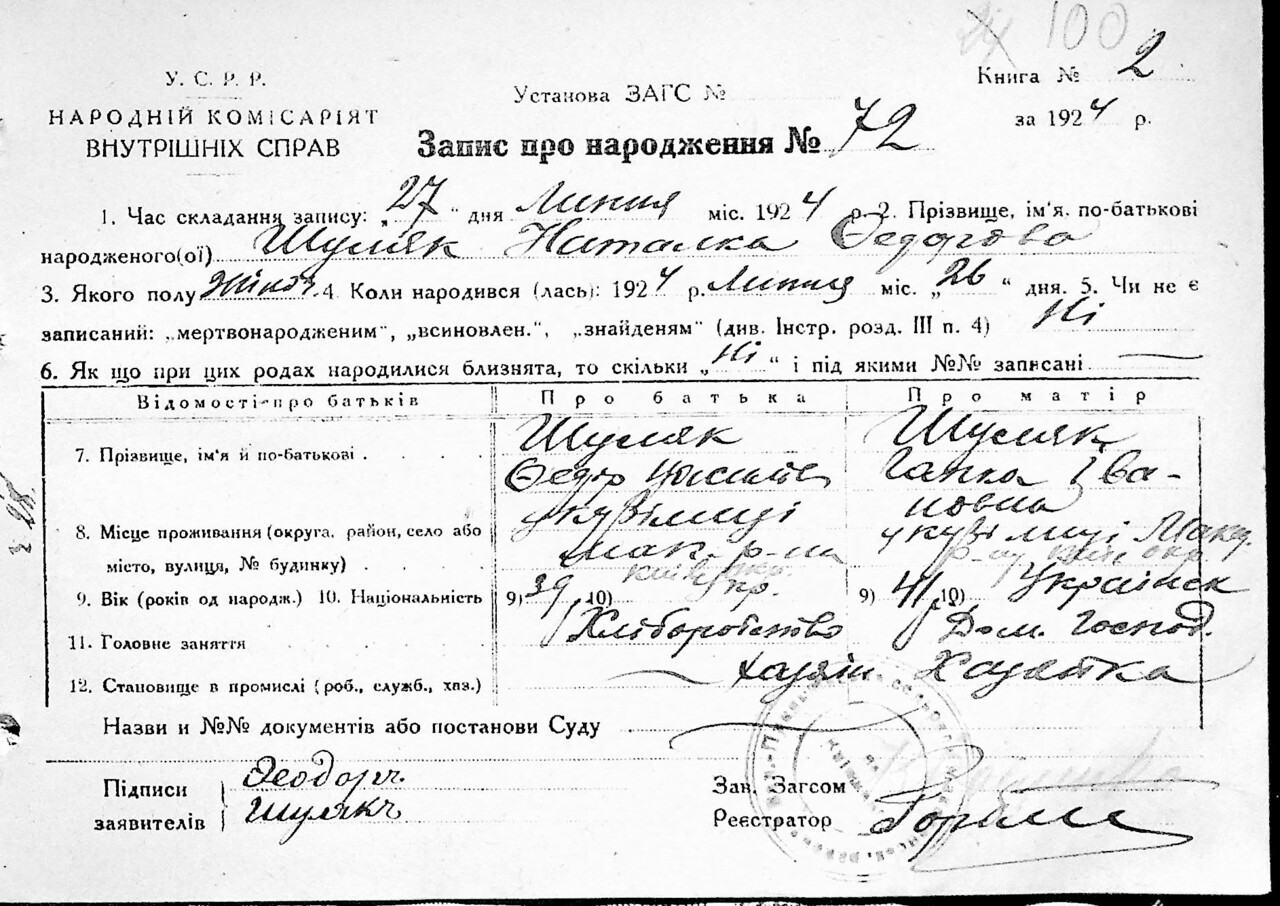 100
У. С. Р. Р.
НАРОДНІЙ КОМІСАРІЯТ
ВНУТРІШНІХ СПРАВ
Установа ЗАГС №
Книга № 2
за 1924 р.
Запис про народження № 72
1. Час складання запису: „27“ дня Липня міс. 1924 р. 2. Прізвище, ім'я, по-батькові
народженого(ої) Шуляк Наталка Ѳедорова
3. Якого полу жіноч. 4. Коли народився (лась): 1924 р. Липня міс. „26“ дня. 5. Чи не є
записаний: „мертвонародженим“, „всиновлен.“, „знайденям“ (див. Інстр. розд. III п. 4) Ні
6. Як що при цих родах народилися близнята, то скільки „Ні“ і під якими №№ записані
Відомості про батьків Про батька Про матір
7. Прізвище, ім'я й по-батькові Шуляк Ѳедір Шуляк Гапка Івановна
8. Місце проживання (округа, район, село або
місто, вулиця, № будинку) мак. р-на
9. Вік (років од народж.) 10. Національність 9) 39 10) Укр. 9) 41 10) Українск
11. Головне заняття Хліборобство Дом. Господ.
12. Становище в промислі (роб., служб., хаз.) Хазяін Хазяйка
Назви и №№ документів або постанови Суду
Підписи
заявителів
Ѳеодоръ
Шулякъ
Зав. Загсом
Реєстратор